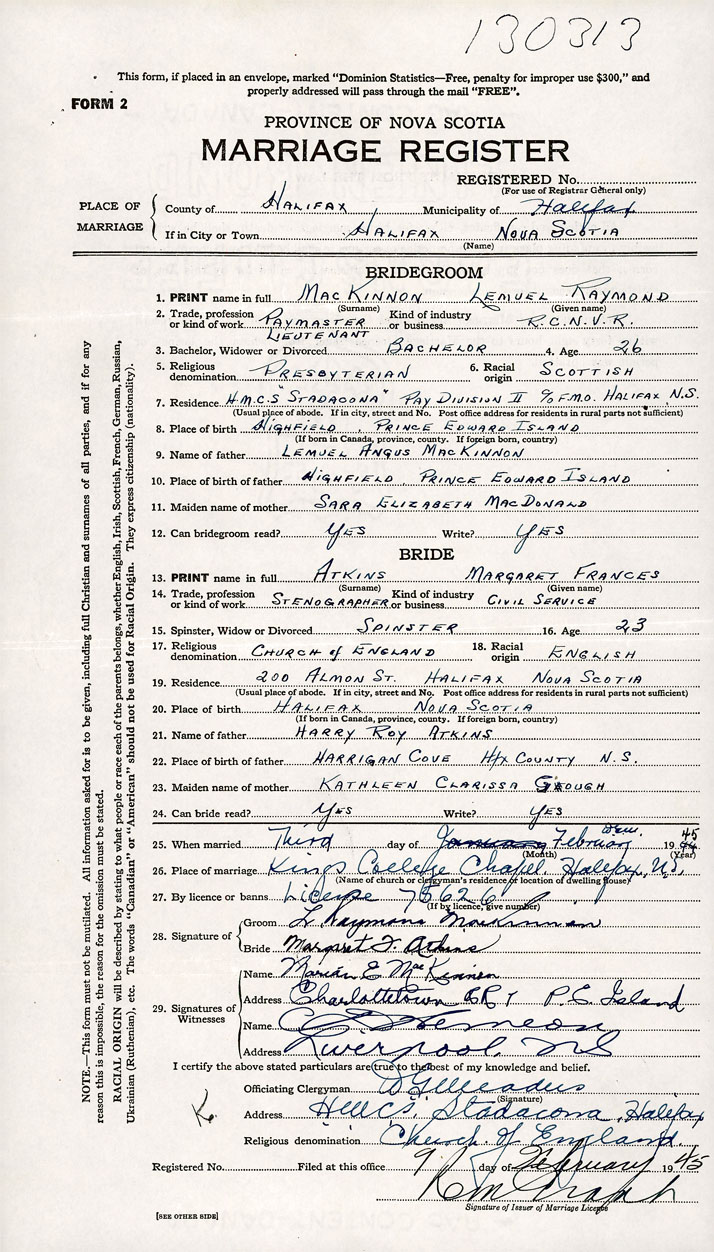 130313
This form, if placed in an envelope, marked "Dominion Statistics—Free, penalty for improper use $300," and
properly addressed will pass through the mail "FREE".
FORM 2
PROVINCE OF NOVA SCOTIA
MARRIAGE REGISTER
REGISTERED No.
(For use of Registrar General only)
PLACE OF MARRIAGE
County of HALIFAX Municipality of Halifax
If in City or Town HALIFAX NOVA SCOTIA
(Name)
BRIDEGROOM
1. PRINT name in full MACKINNON LEMUEL RAYMOND
(Surname) (Given name)
2. Trade, profession or kind of work PAYMASTER LIEUTENANT Kind of industry or business R.C.N.V.R.
3. Bachelor, Widower or Divorced BACHELOR 4. Age 26
5. Religious denomination PRESBYTERIAN 6. Racial origin SCOTTISH
7. Residence H.M.C.S "STADACONA" PAY DIVISION II c/o F.M.O. HALIFAX N.S.
(Usual place of abode. If in city, street and No. Post office address for residents in rural parts not sufficient)
8. Place of birth HIGHFIELD, PRINCE EDWARD ISLAND
(If born in Canada, province, county. If foreign born, country)
9. Name of father LEMUEL ANGUS MACKINNON
10. Place of birth of father HIGHFIELD, PRINCE EDWARD ISLAND
11. Maiden name of mother SARA ELIZABETH MACDONALD
12. Can bridegroom read? YES Write? YES
BRIDE
13. PRINT name in full ATKINS MARGARET FRANCES
(Surname) (Given name)
14. Trade, profession or kind of work STENOGRAPHER Kind of industry or business CIVIL SERVICE
15. Spinster, Widow or Divorced SPINSTER 16. Age 23
17. Religious denomination CHURCH of ENGLAND 18. Racial origin ENGLISH
19. Residence 200 ALMON ST. HALIFAX NOVA SCOTIA
(Usual place of abode. If in city, street and No. Post office address for residents in rural parts not sufficient)
20. Place of birth HALIFAX NOVA SCOTIA
(If born in Canada, province, county. If foreign born, country)
21. Name of father HARRY ROY ATKINS
22. Place of birth of father HARRIGAN COVE HFX COUNTY N.S.
23. Maiden name of mother KATHLEEN CLARISSA
24. Can bride read? YES Write? YES
25. When married Third day of January February 19 45
(Month) (Year)
26. Place of marriage Kings College Chapel, Halifax, N.S.
(Name of church or clergyman's residence or location of dwelling house)
27. By licence or banns License 75626
(If by licence, give number)
28. Signature of
Groom L. Raymond MacKinnon
Bride Margaret F. Atkins
29. Signatures of Witnesses
Name Marian E. MacKinnon
Address Charlottetown RR 1 P.E. Island
Name
Address Liverpool, NS
I certify the above stated particulars are true to the best of my knowledge and belief.
Officiating Clergyman
(Signature)
Address HMCS. Stadacona, Halifax
Religious denomination Church of England
Registered No. Filed at this office 9 day of February 1945
Signature of Issuer of Marriage License
[SEE OTHER SIDE]
NOTE.—This form must not be mutilated. All information asked for is to be given, including full Christian and surnames of all parties, and if for any
reason this is impossible, the reason for the omission must be stated.
RACIAL ORIGIN will be described by stating to what people or race each of the parents belongs, whether English, Irish, Scottish, French, German, Russian,
Ukrainian (Ruthenian), etc. The words "Canadian" or "American" should not be used for Racial Origin. They express citizenship (nationality).